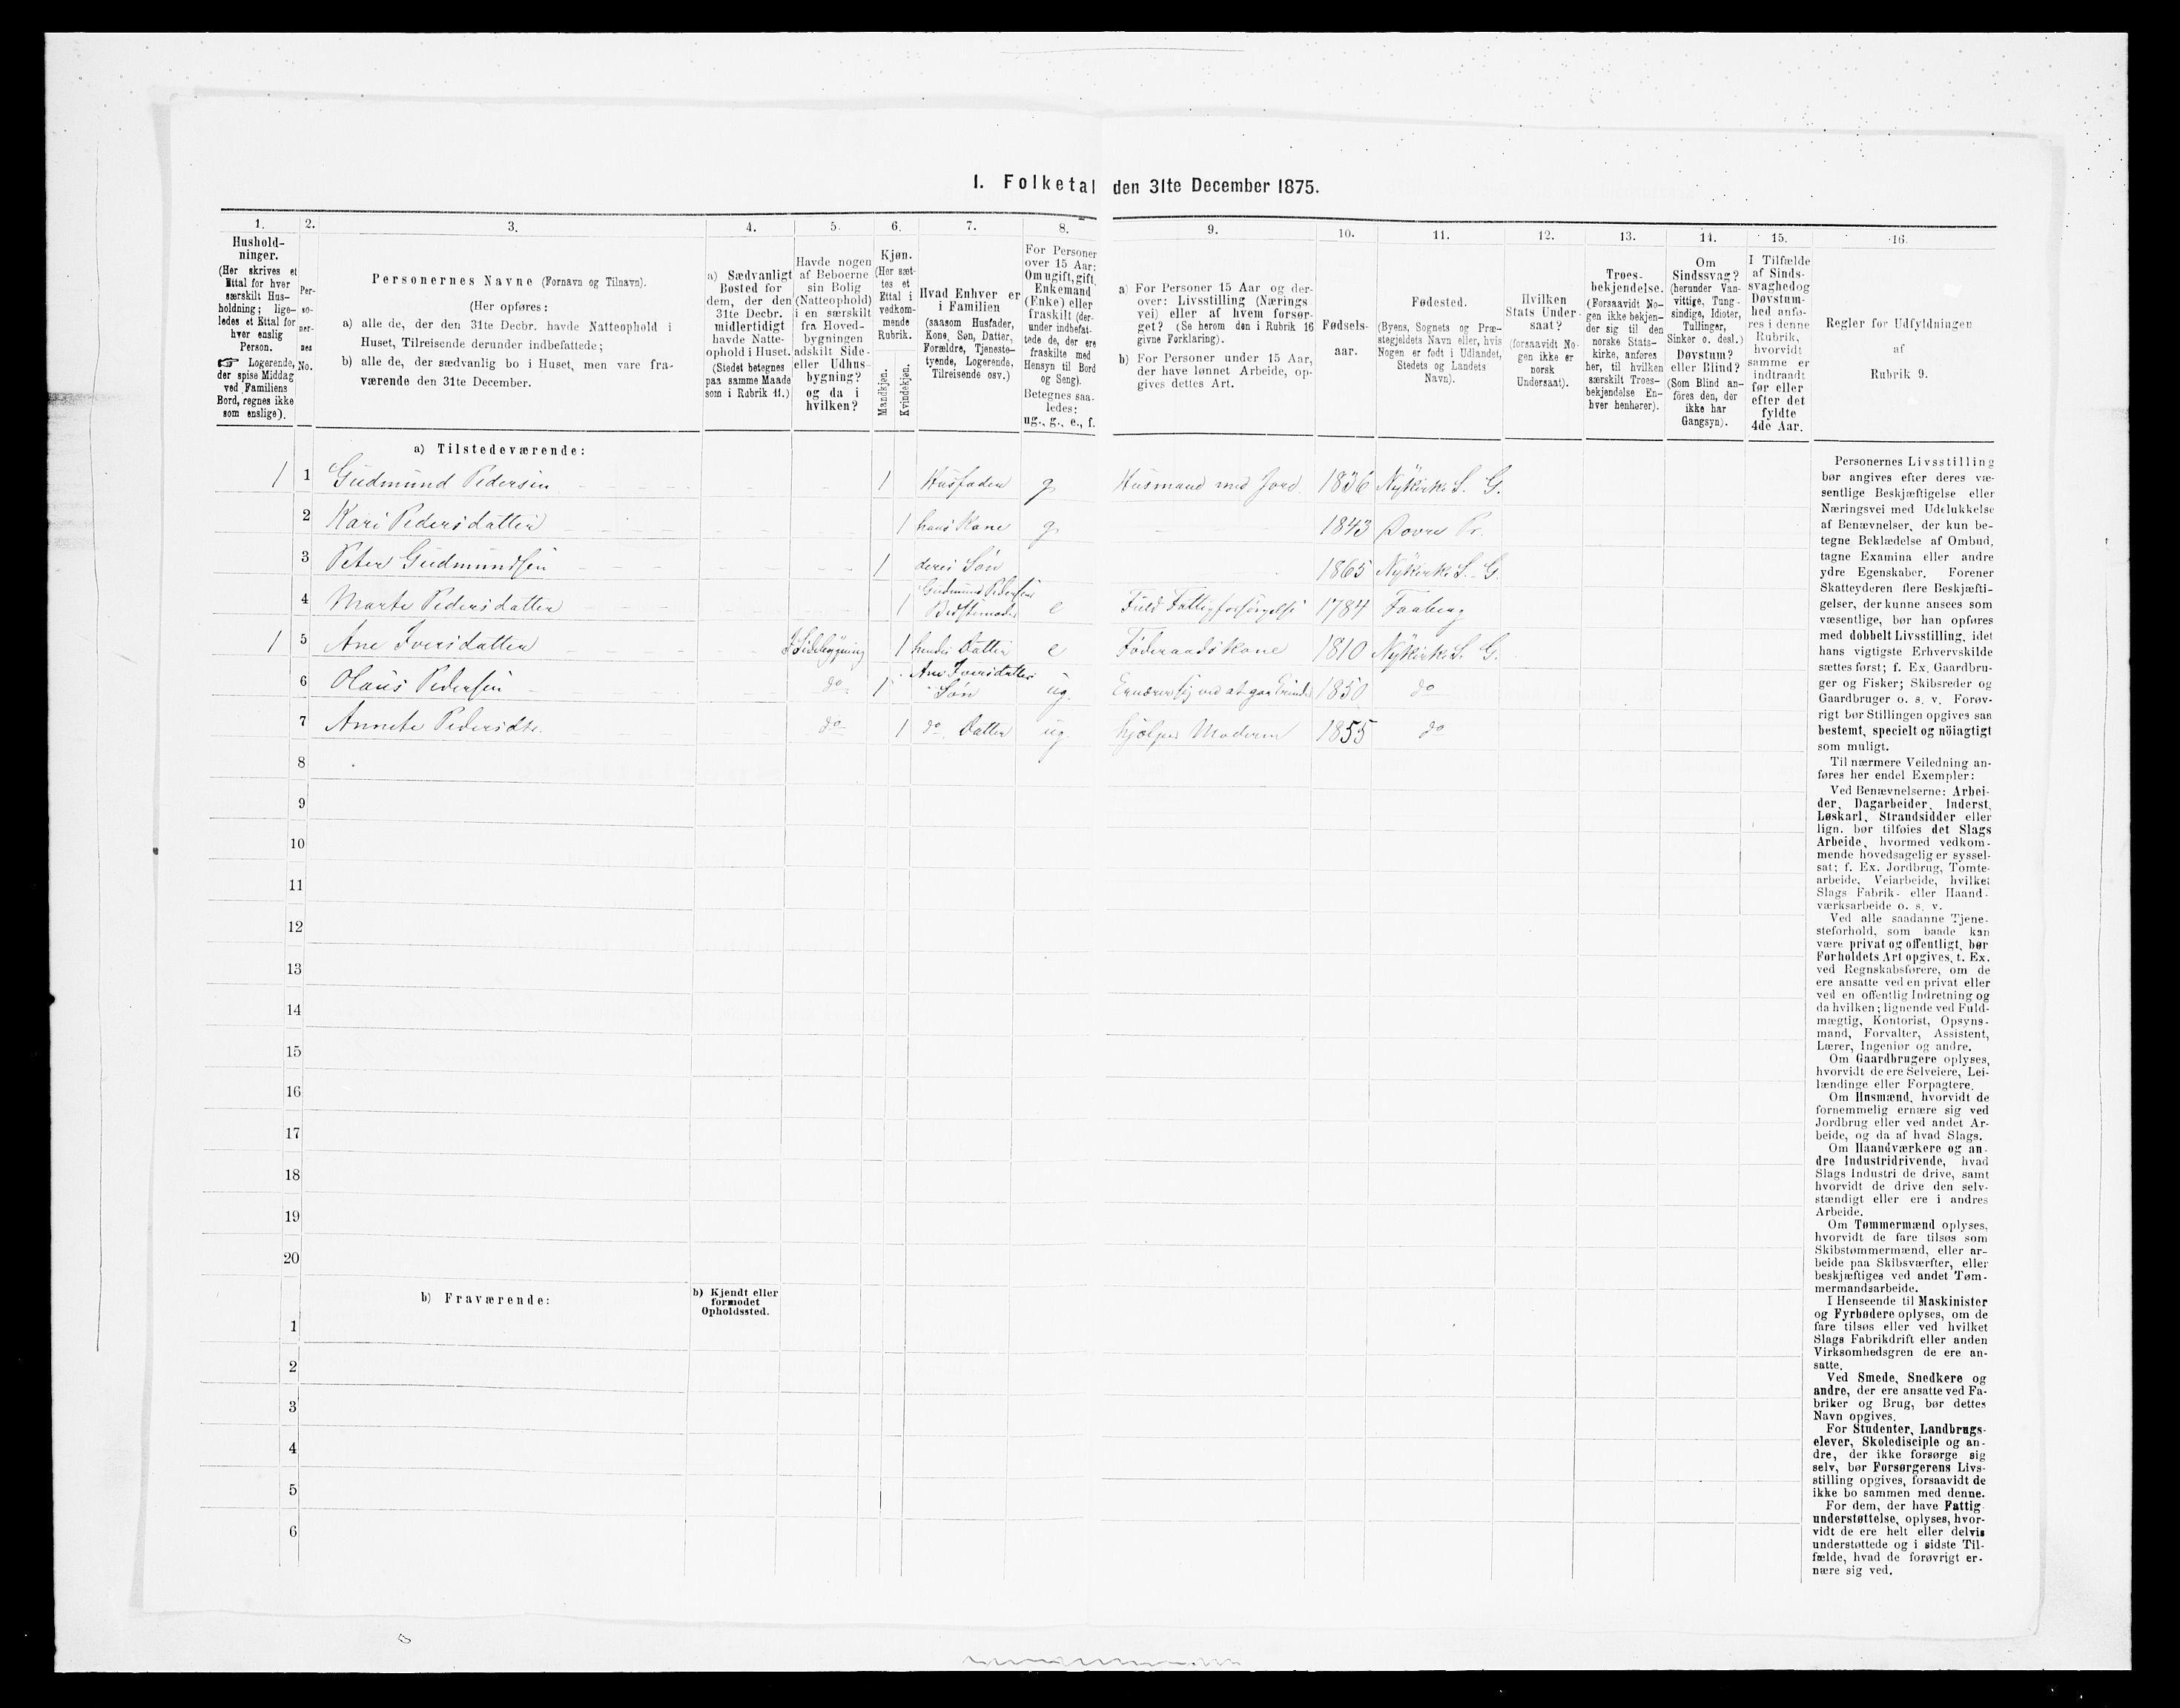 I. Folketal den 31te December 1875.
1.
Hushold-
ninger.
(Her skrives et
Ettal for hver
særskilt Hus-
holdning; lige-
ledes et Ettal for
hver enslig
Person.
☞ Logerende,
der spise Middag
ved Familiens
Bord, regnes ikke
som enslige).
2.
Per-
so-
ner-
nes
No.
3.
Personernes Navne (Fornavn og Tilnavn).
(Her opføres:
a) alle de, der den 31te Decbr. havde Natteophold i
Huset, Tilreisende derunder indbefattede;
b) alle de, der sædvanlig bo i Huset, men vare fra-
værende den 31te December.
4.
a) Sædvanligt
Bosted for
dem, der den
31te Decbr.
midlertidigt
havde Natte-
ophold i Huset.
(Stedet betegnes
paa samme Maade
som i Rubrik 11.)
5.
Havde nogen
af Beboerne
sin Bolig
(Natteophold)
i en særskilt
fra Hoved-
bygningen
adskilt Side-
eller Udhus-
bygning?
og da i
hvilken?
6.
Kjøn.
(Her sæt-
tes et
Ettal i
vedkom-
mende
Rubrik.
Mandkjøn.
Kvindekjøn.
7.
Hvad Enhver er
i Familien
(saasom Husfader,
Kone, Søn, Datter,
Forældre, Tjeneste-
tyende, Logerende,
Tilreisende osv.)
8.
For Personer
over 15 Aar:
Om ugift, gift,
Enkemand
(Enke) eller
fraskilt (der-
under indbefat-
tede de, der ere
fraskilte med
Hensyn til Bord
og Seng).
Betegnes saa-
ledes:
ug., g., e., f.
9.
a) For Personer 15 Aar og der-
over: Livsstilling (Nærings
vei) eller af hvem forsør-
get? (Se herom den i Rubrik 16
givne Forklaring).
b) For Personer under 15 Aar,
der have lønnet Arbeide, op-
gives dettes Art.
10.
Fødsels-
aar.
11.
Fødested.
(Byens, Sognets og Præ-
stegjeldets Navn eller, hvis
Nogen er født i Udlandet,
Stedets og Landets
Navn).
12.
Hvilken
Stats Under-
saat?
(forsaavidt No-
gen ikke er
norsk
Undersaat).
13.
Troes-
bekjendelse.
(Forsaavidt No-
gen ikke bekjen-
der sig til den
norske Stats-
kirke, anføres
her, til hvilken
særskilt Troes-
bekjendelse En-
hver henhører).
14.
Om
Sindssvag?
(herunder Van-
vittige, Tung-
sindige, Idioter,
Tullinger,
Sinker o. desl.)
Døvstum?
eller Blind?
(Som Blind an-
føres den, der
ikke har
Gangsyn).
15.
I Tilfælde
af Sinds-
svaghed og
Døvstum-
hed anfø-
res i denne
Rubrik,
hvorvidt
samme er
indtraadt
før eller
efter det
fyldte
4de Aar.
16.
Regler for Udfyldningen
af
Rubrik 9.
a) Tilstedeværende:
1 1 Gudmund Pedersen 1 Husfader g Husmand med Jord 1836 Nykirke S. G.
2 Kari Pedersdatter 1 hans Kone g 1843 Dovre Pr.
3 Peter Gudmundsen 1 deres Søn 1865 Nykirke S. G.
4 Marte Pedersdatter 1 Gudmund Pedersens Bedstemoder e Fuld Fattigforsørgelse 1784 Faaberg
1 5 Ane Iversdatter I Sidebygning 1 hendes Datter e Føderaadskone 1810 Nykirke S. G.
6 Olaus Pedersen do 1 Ane Iversdatters Søn ug. Ernærer sig ved at gaa Erinder 1850 do
7 Annete Pedersdtr. do 1 do. Datter ug. hjælper Moderen 1855 do
8
9
10
11
12
13
14
15
16
17
18
19
20
b) Fraværende:
b) Kjendt eller
formodet
Opholdssted.
1
2
3
4
5
6
Personernes Livsstilling
bør angives efter deres væ-
sentlige Beskjæftigelse eller
Næringsvei med Udelukkelse
af Benævnelser, der kun be-
tegne Beklædelse af Ombud,
tagne Examina eller andre
ydre Egenskaber. Forener
Skatteyderen flere Beskjæfti-
gelser, der kunne ansees som
væsentlige, bør han opføres
med dobbelt Livsstilling, idet
hans vigtigste Erhvervskilde
sættes først; f. Ex. Gaardbru-
ger og Fisker; Skibsreder og
Gaardbruger o. s. v. Forøv-
rigt bør Stillingen opgives saa
bestemt, specielt og nöiagtigt
som muligt.
Til nærmere Veiledning an-
føres her endel Exempler:
Ved Benævnelserne: Arbei-
der, Dagarbeider, Inderst,
Løskarl, Strandsidder eller
lign. bør tilføies det Slags
Arbeide, hvormed vedkom-
mende hovedsagelig er syssel-
sat; f. Ex. Jordbrug, Tomte-
arbeide, Veiarbeide, hvilket
Slags Fabrik- eller Haand-
værksarbeide o. s. v.
Ved alle saadanne Tjene-
steforhold, som baade kan
være privat og offentligt, bør
Forholdets Art opgives, t. Ex.
ved Regnskabsførere, om de
ere ansatte ved en privat eller
ved en offentlig Indretning og
da hvilken; lignende ved Fuld-
mægtig, Kontorist, Opsyns-
mand, Forvalter, Assistent,
Lærer, Ingeniør og andre.
Om Gaardbrugere oplyses,
hvorvidt de ere Selveiere, Lei-
lændinge eller Forpagtere.
Om Husmænd, hvorvidt de
fornemmelig ernære sig ved
Jordbrug eller ved andet Ar-
beide, og da af hvad Slags.
Om Haandværkere og an-
dre Industridrivende, hvad
Slags Industri de drive, samt
hvorvidt de drive den selv-
stændigt eller ere i andres
Arbeide.
Om Tømmermænd oplyses,
hvorvidt de fare tilsøs som
Skibstømmermænd, eller ar-
beide paa Skibsværfter, eller
beskjæftiges ved andet Tøm-
mermandsarbeide.
I Henseende til Maskinister
og Fyrbødere oplyses, om de
fare tilsøs eller ved hvilket
Slags Fabrikdrift eller anden
Virksomhedsgren de ere an-
satte.
Ved Smede, Snedkere og
andre, der ere ansatte ved Fa-
briker og Brug, bør dettes
Navn opgives.
For Studenter, Landbrugs-
elever, Skoledisciple og an-
dre, der ikke forsørge sig
selv, bør Forsørgerens Livs-
stilling opgives, forsaavidt de
ikke bo sammen med denne.
For dem, der have Fattig
understøttelse, oplyses, hvor-
vidt de ere helt eller delvis
understøttede og i sidste Til-
fælde, hvad de forøvrigt er-
nære sig ved.